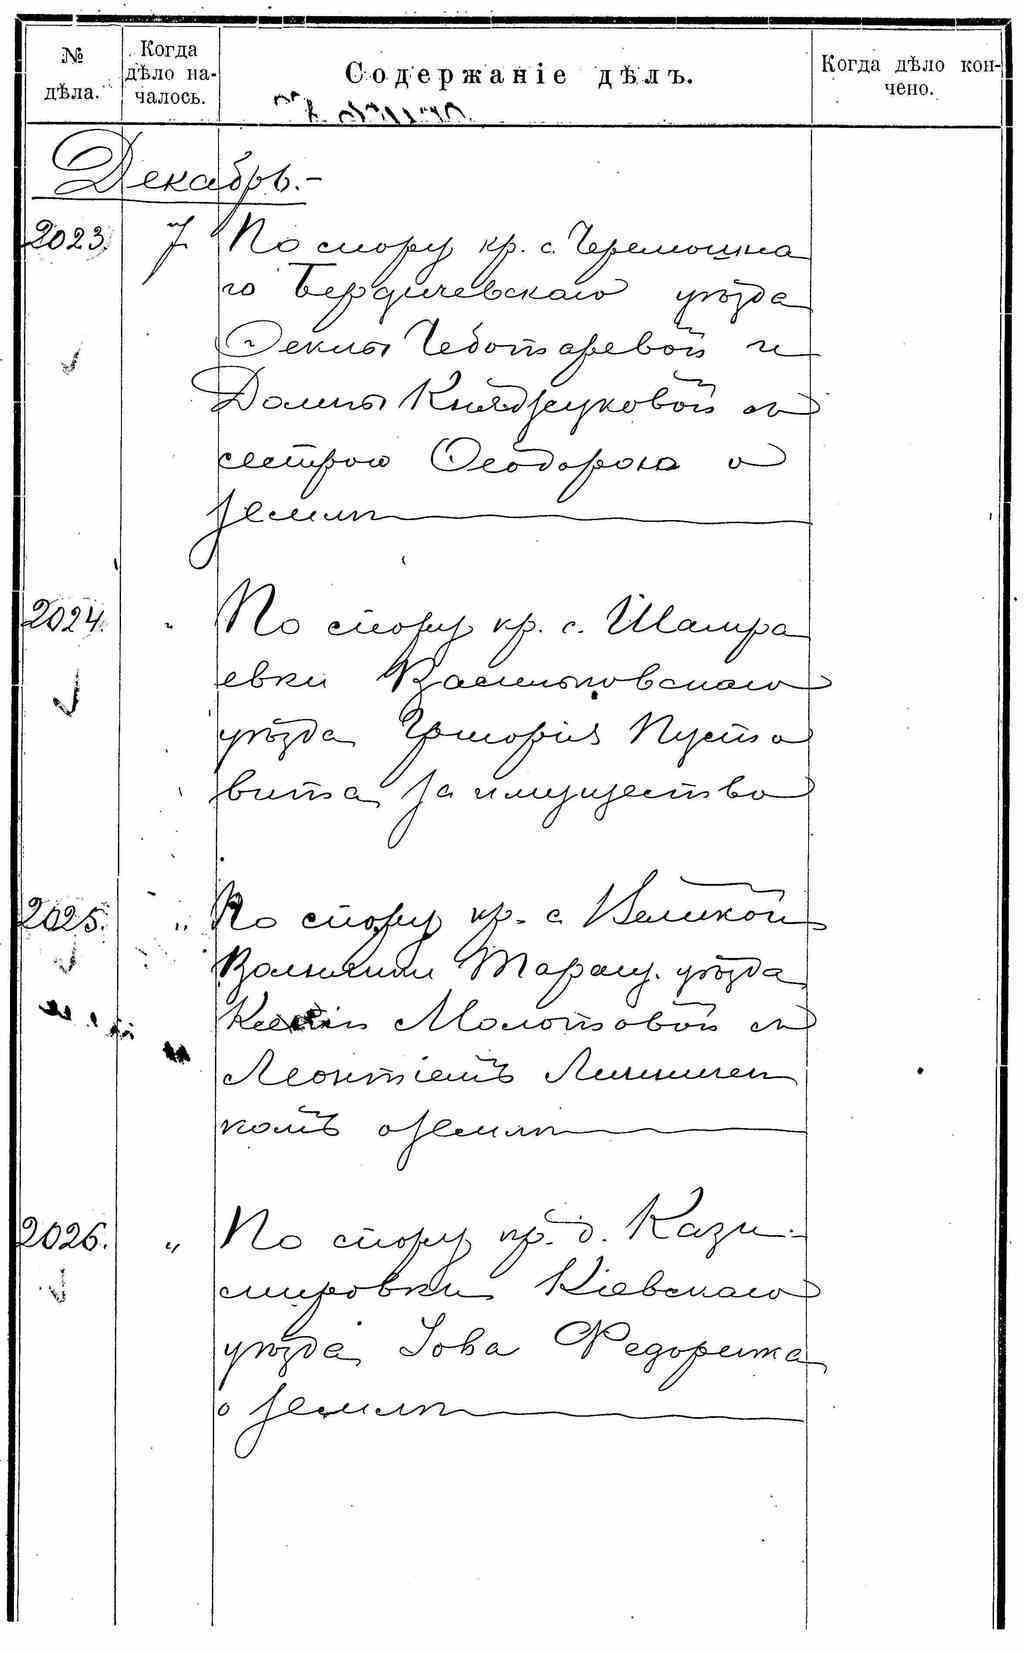 № дѣла.
Когда дѣло на-
чалось.
Содержаніе дѣлъ.
Когда дѣло кон-
чено.
Декабрь.-
2023. 7 По спору кр. с. Черемошна
го Бердичевскаго уѣзда
Ѳеклы Чеботаревой и
Домны Княдзюковой съ
сестрою Ѳеодорою о
землѣ
2024. " По спору кр. с. Шамра
евки Васильковскаго
уѣзда Григорія Пусто
вита за имущество
2025. " По спору кр. с Великой
Вольнянки Таращ. уѣзда
Ксеніи Молотовой съ
Леонтіемъ Линничен
комъ о землѣ
2026. " По спору кр. д. Кази-
мировки Кіевскаго
уѣзда Іова Федорежа
о землѣ